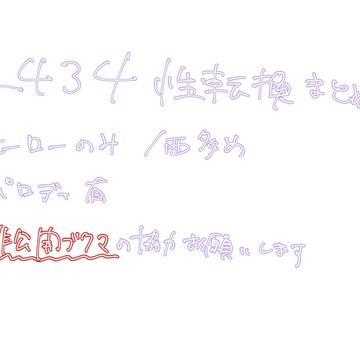 434 性転換まとめ
ーローのみ / 西多め
パロディ有
非公開ブクマの協力お願いします